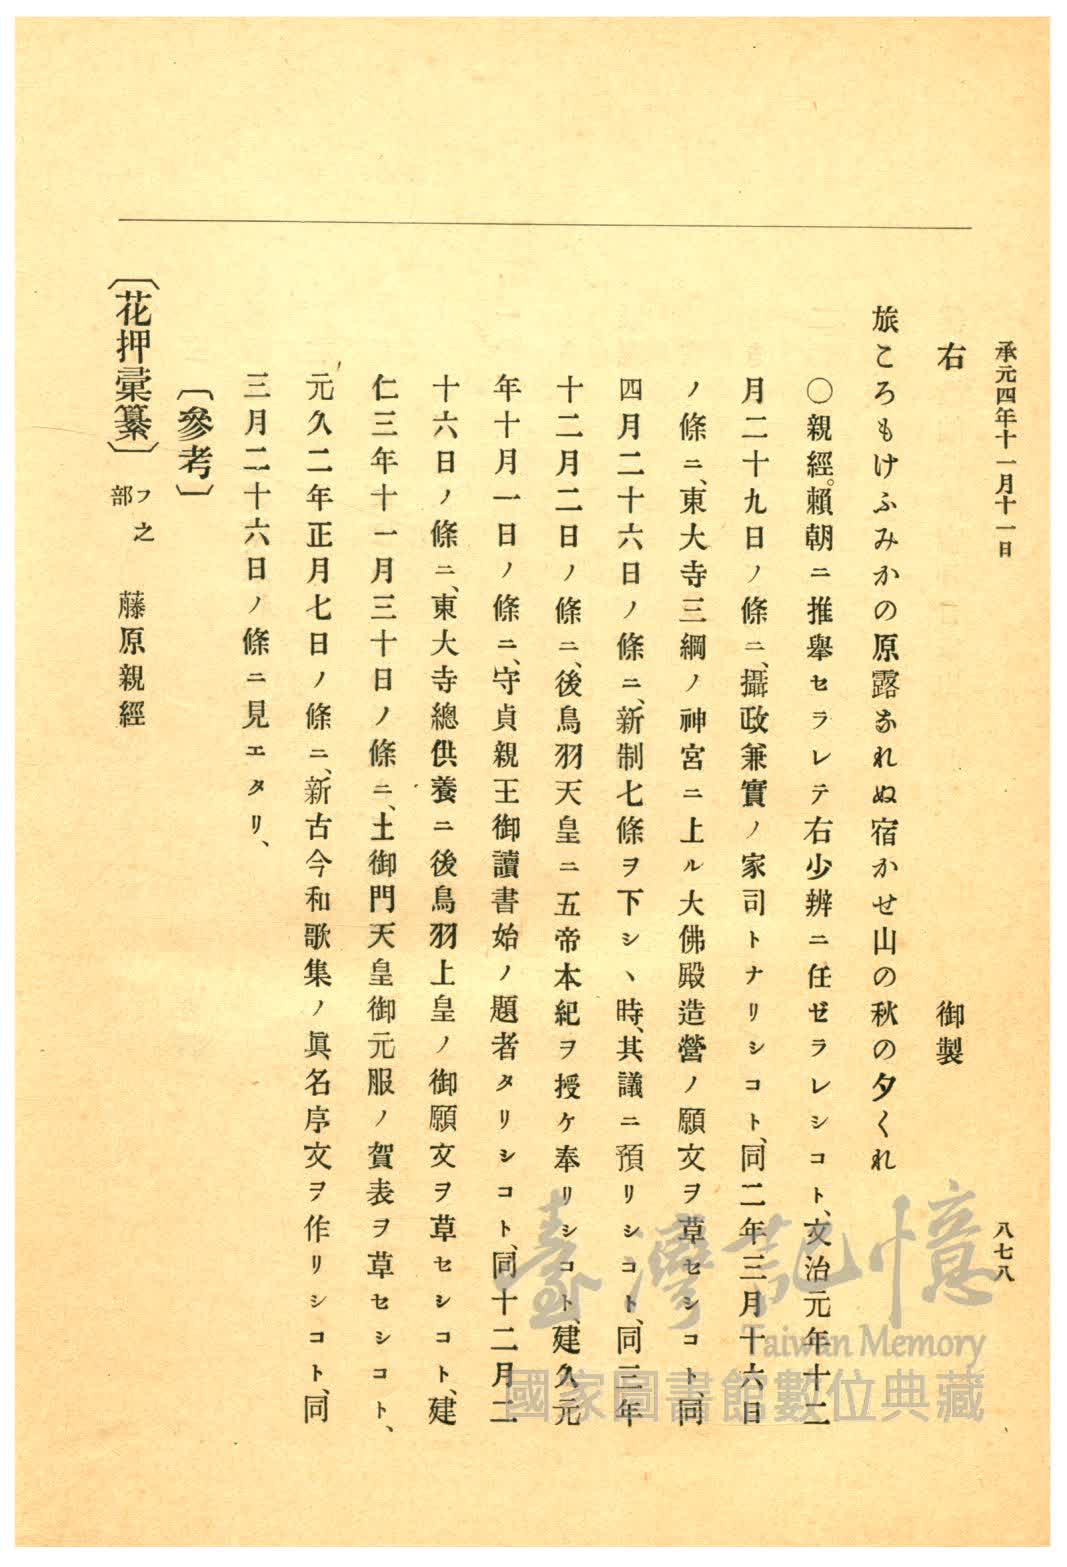 承元四年十一月十一日 八七八
右 御製
旅ころもけふみかの原露なれぬ宿かせ山の秋の夕くれ
〇親經。賴朝ニ推擧セラレテ右少辨ニ任ゼラレシコト、文治元年十二
月二十九日ノ條ニ、攝政兼實ノ家司トナリシコト、同二年三月十六日
ノ條ニ、東大寺三綱ノ神宮ニ上ル大佛殿造營ノ願文ヲ草セシコト、同
四月二十六日ノ條ニ、新制七條ヲ下シヽ時、其議ニ預リシコト、同三年
十二月二日ノ條ニ、後鳥羽天皇ニ五帝本紀ヲ授ケ奉リシコト、建久元
年十月一日ノ條ニ、守貞親王御讀書始ノ題者タリシコト、同十二月二
十六日ノ條ニ、東大寺總供養ニ後鳥羽上皇ノ御願文ヲ草セシコト、建
仁三年十一月三十日ノ條ニ、土御門天皇御元服ノ賀表ヲ草セシコト、
元久二年正月七日ノ條ニ、新古今和歌集ノ眞名序文ヲ作リシコト、同
三月二十六日ノ條ニ見エタリ、
〔參考〕
〔花押彙纂〕 フ之部 藤原親經
臺灣記憶
Taiwan Memory
國家圖書館數位典藏